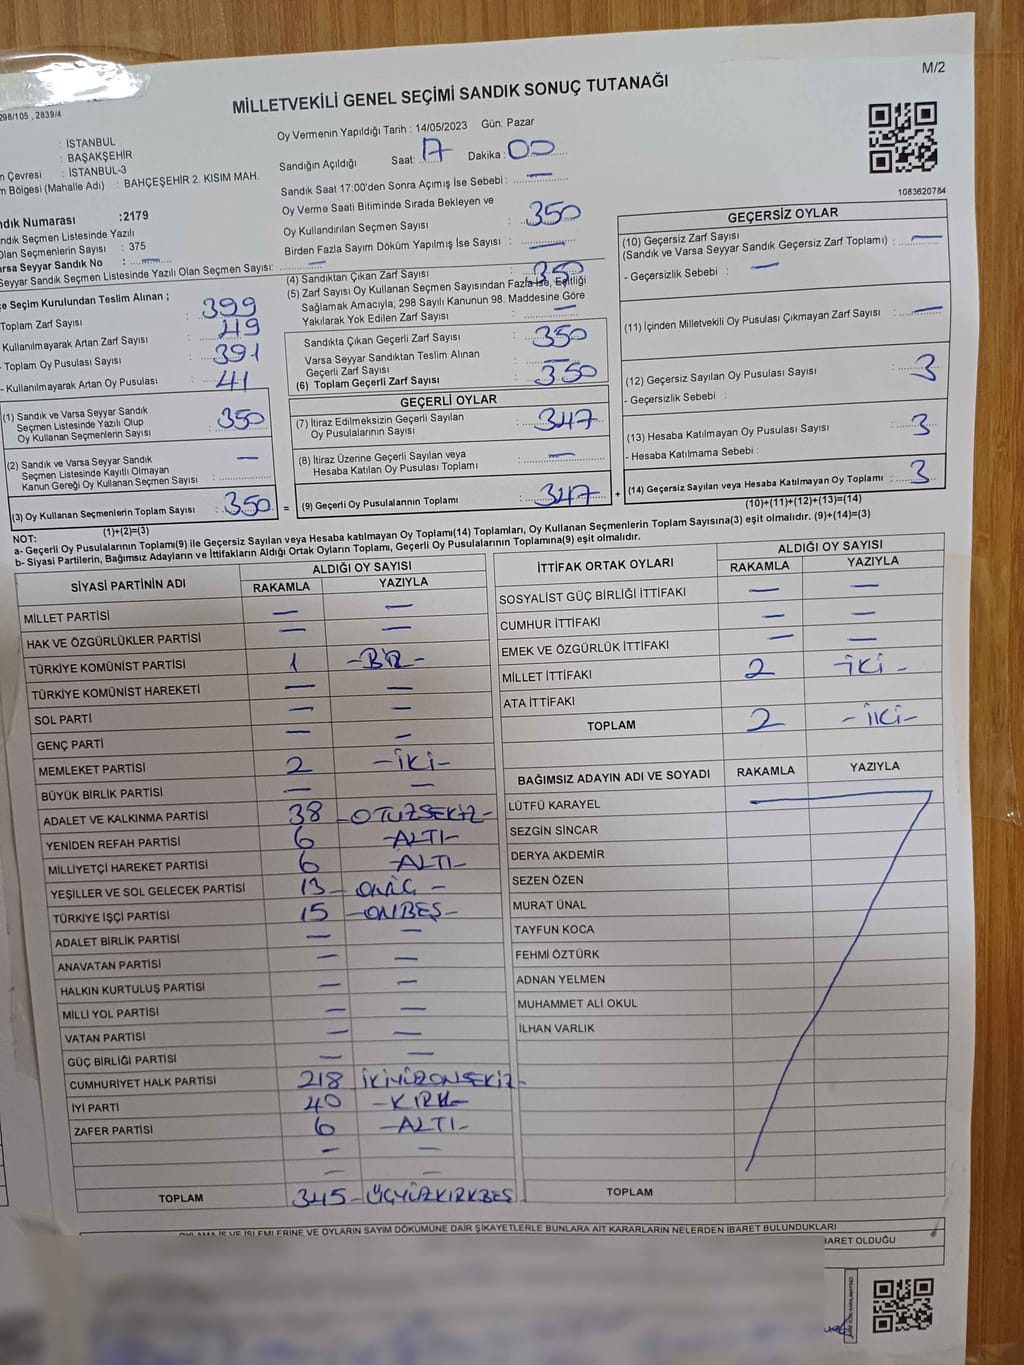 M/2
298/105 , 2839/4
MİLLETVEKİLİ GENEL SEÇİMİ SANDIK SONUÇ TUTANAĞI
: İSTANBUL
: BAŞAKŞEHİR
Çevresi : İSTANBUL-3
Bölgesi (Mahalle Adı) : BAHÇEŞEHİR 2. KISIM MAH.
Numarası :2179
Seçmen Listesinde Yazılı
Olan Seçmenlerin Sayısı : 375
Varsa Seyyar Sandık No : —
Seyyar Sandık Seçmen Listesinde Yazılı Olan Seçmen Sayısı: —
Oy Vermenin Yapıldığı Tarih : 14/05/2023 Gün: Pazar
Sandığın Açıldığı Saat: 17 Dakika : 00
Sandık Saat 17:00'den Sonra Açımış İse Sebebi : —
Oy Verme Saati Bitiminde Sırada Bekleyen ve
Oy Kullandırılan Seçmen Sayısı : 350
Birden Fazla Sayım Döküm Yapılmış İse Sayısı : —
1083620784
Seçim Kurulundan Teslim Alınan ;
Toplam Zarf Sayısı : 399
Kullanılmayarak Artan Zarf Sayısı : 49
- Toplam Oy Pusulası Sayısı : 391
- Kullanılmayarak Artan Oy Pusulası : 41
(1) Sandık ve Varsa Seyyar Sandık
Seçmen Listesinde Yazılı Olup
Oy Kullanan Seçmenlerin Sayısı : 350
(2) Sandık ve Varsa Seyyar Sandık
Seçmen Listesinde Kayıtlı Olmayan
Kanun Gereği Oy Kullanan Seçmen Sayısı : —
(3) Oy Kullanan Seçmenlerin Toplam Sayısı : 350
(1)+(2)=(3)
(4) Sandıktan Çıkan Zarf Sayısı : 350
(5) Zarf Sayısı Oy Kullanan Seçmen Sayısından Fazla ise, Eşitliği
Sağlamak Amacıyla; 298 Sayılı Kanunun 98. Maddesine Göre
Yakılarak Yok Edilen Zarf Sayısı : —
Sandıkta Çıkan Geçerli Zarf Sayısı : 350
Varsa Seyyar Sandıktan Teslim Alınan
Geçerli Zarf Sayısı :
(6) Toplam Geçerli Zarf Sayısı : 350
GEÇERLİ OYLAR
(7) İtiraz Edilmeksizin Geçerli Sayılan
Oy Pusulalarının Sayısı : 347
(8) İtiraz Üzerine Geçerli Sayılan veya
Hesaba Katılan Oy Pusulası Toplamı : —
= (9) Geçerli Oy Pusulalarının Toplamı : 347 +
GEÇERSİZ OYLAR
(10) Geçersiz Zarf Sayısı
(Sandık ve Varsa Seyyar Sandık Geçersiz Zarf Toplamı) : —
- Geçersizlik Sebebi : —
(11) İçinden Milletvekili Oy Pusulası Çıkmayan Zarf Sayısı : —
(12) Geçersiz Sayılan Oy Pusulası Sayısı : 3
- Geçersizlik Sebebi :
(13) Hesaba Katılmayan Oy Pusulası Sayısı : 3
- Hesaba Katılmama Sebebi :
(14) Geçersiz Sayılan veya Hesaba Katılmayan Oy Toplamı : 3
(10)+(11)+(12)+(13)=(14)
NOT:
a- Geçerli Oy Pusulalarının Toplamı(9) ile Geçersiz Sayılan veya Hesaba katılmayan Oy Toplamı(14) Toplamları, Oy Kullanan Seçmenlerin Toplam Sayısına(3) eşit olmalıdır. (9)+(14)=(3)
b- Siyasi Partilerin, Bağımsız Adayların ve İttifakların Aldığı Ortak Oyların Toplamı, Geçerli Oy Pusulalarının Toplamına(9) eşit olmalıdır.
SİYASİ PARTİNİN ADI ALDIĞI OY SAYISI
RAKAMLA YAZIYLA
MİLLET PARTİSİ — —
HAK VE ÖZGÜRLÜKLER PARTİSİ — —
TÜRKİYE KOMÜNİST PARTİSİ 1 -BİR-
TÜRKİYE KOMÜNİST HAREKETİ — —
SOL PARTİ — —
GENÇ PARTİ — —
MEMLEKET PARTİSİ 2 -İKİ-
BÜYÜK BİRLİK PARTİSİ — —
ADALET VE KALKINMA PARTİSİ 38 -OTUZSEKİZ-
YENİDEN REFAH PARTİSİ 6 -ALTI-
MİLLİYETÇİ HAREKET PARTİSİ 6 -ALTI-
YEŞİLLER VE SOL GELECEK PARTİSİ 13 -ONÜÇ-
TÜRKİYE İŞÇİ PARTİSİ 15 -ONBEŞ-
ADALET BİRLİK PARTİSİ — —
ANAVATAN PARTİSİ — —
HALKIN KURTULUŞ PARTİSİ — —
MİLLİ YOL PARTİSİ — —
VATAN PARTİSİ — —
GÜÇ BİRLİĞİ PARTİSİ — —
CUMHURİYET HALK PARTİSİ 218 İKİYÜZONSEKİZ-
İYİ PARTİ 40 -KIRK-
ZAFER PARTİSİ 6 -ALTI-
— —
— —
TOPLAM 345 -ÜÇYÜZKIRKBEŞ
İTTİFAK ORTAK OYLARI ALDIĞI OY SAYISI
RAKAMLA YAZIYLA
SOSYALİST GÜÇ BİRLİĞİ İTTİFAKI — —
CUMHUR İTTİFAKI — —
EMEK VE ÖZGÜRLÜK İTTİFAKI — —
MİLLET İTTİFAKI 2 -İKİ-
ATA İTTİFAKI
TOPLAM 2 -İKİ-
BAĞIMSIZ ADAYIN ADI VE SOYADI RAKAMLA YAZIYLA
LÜTFÜ KARAYEL
SEZGİN SİNCAR
DERYA AKDEMİR
SEZEN ÖZEN
MURAT ÜNAL
TAYFUN KOCA
FEHMİ ÖZTÜRK
ADNAN YELMEN
MUHAMMET ALİ OKUL
İLHAN VARLIK
TOPLAM
OYLAMA İŞ VE İŞLEMLERİNE VE OYLARIN SAYIM DÖKÜMÜNE DAİR ŞİKAYETLERLE BUNLARA AİT KARARLARIN NELERDEN İBARET BULUNDUKLARI
İBARET OLDUĞU